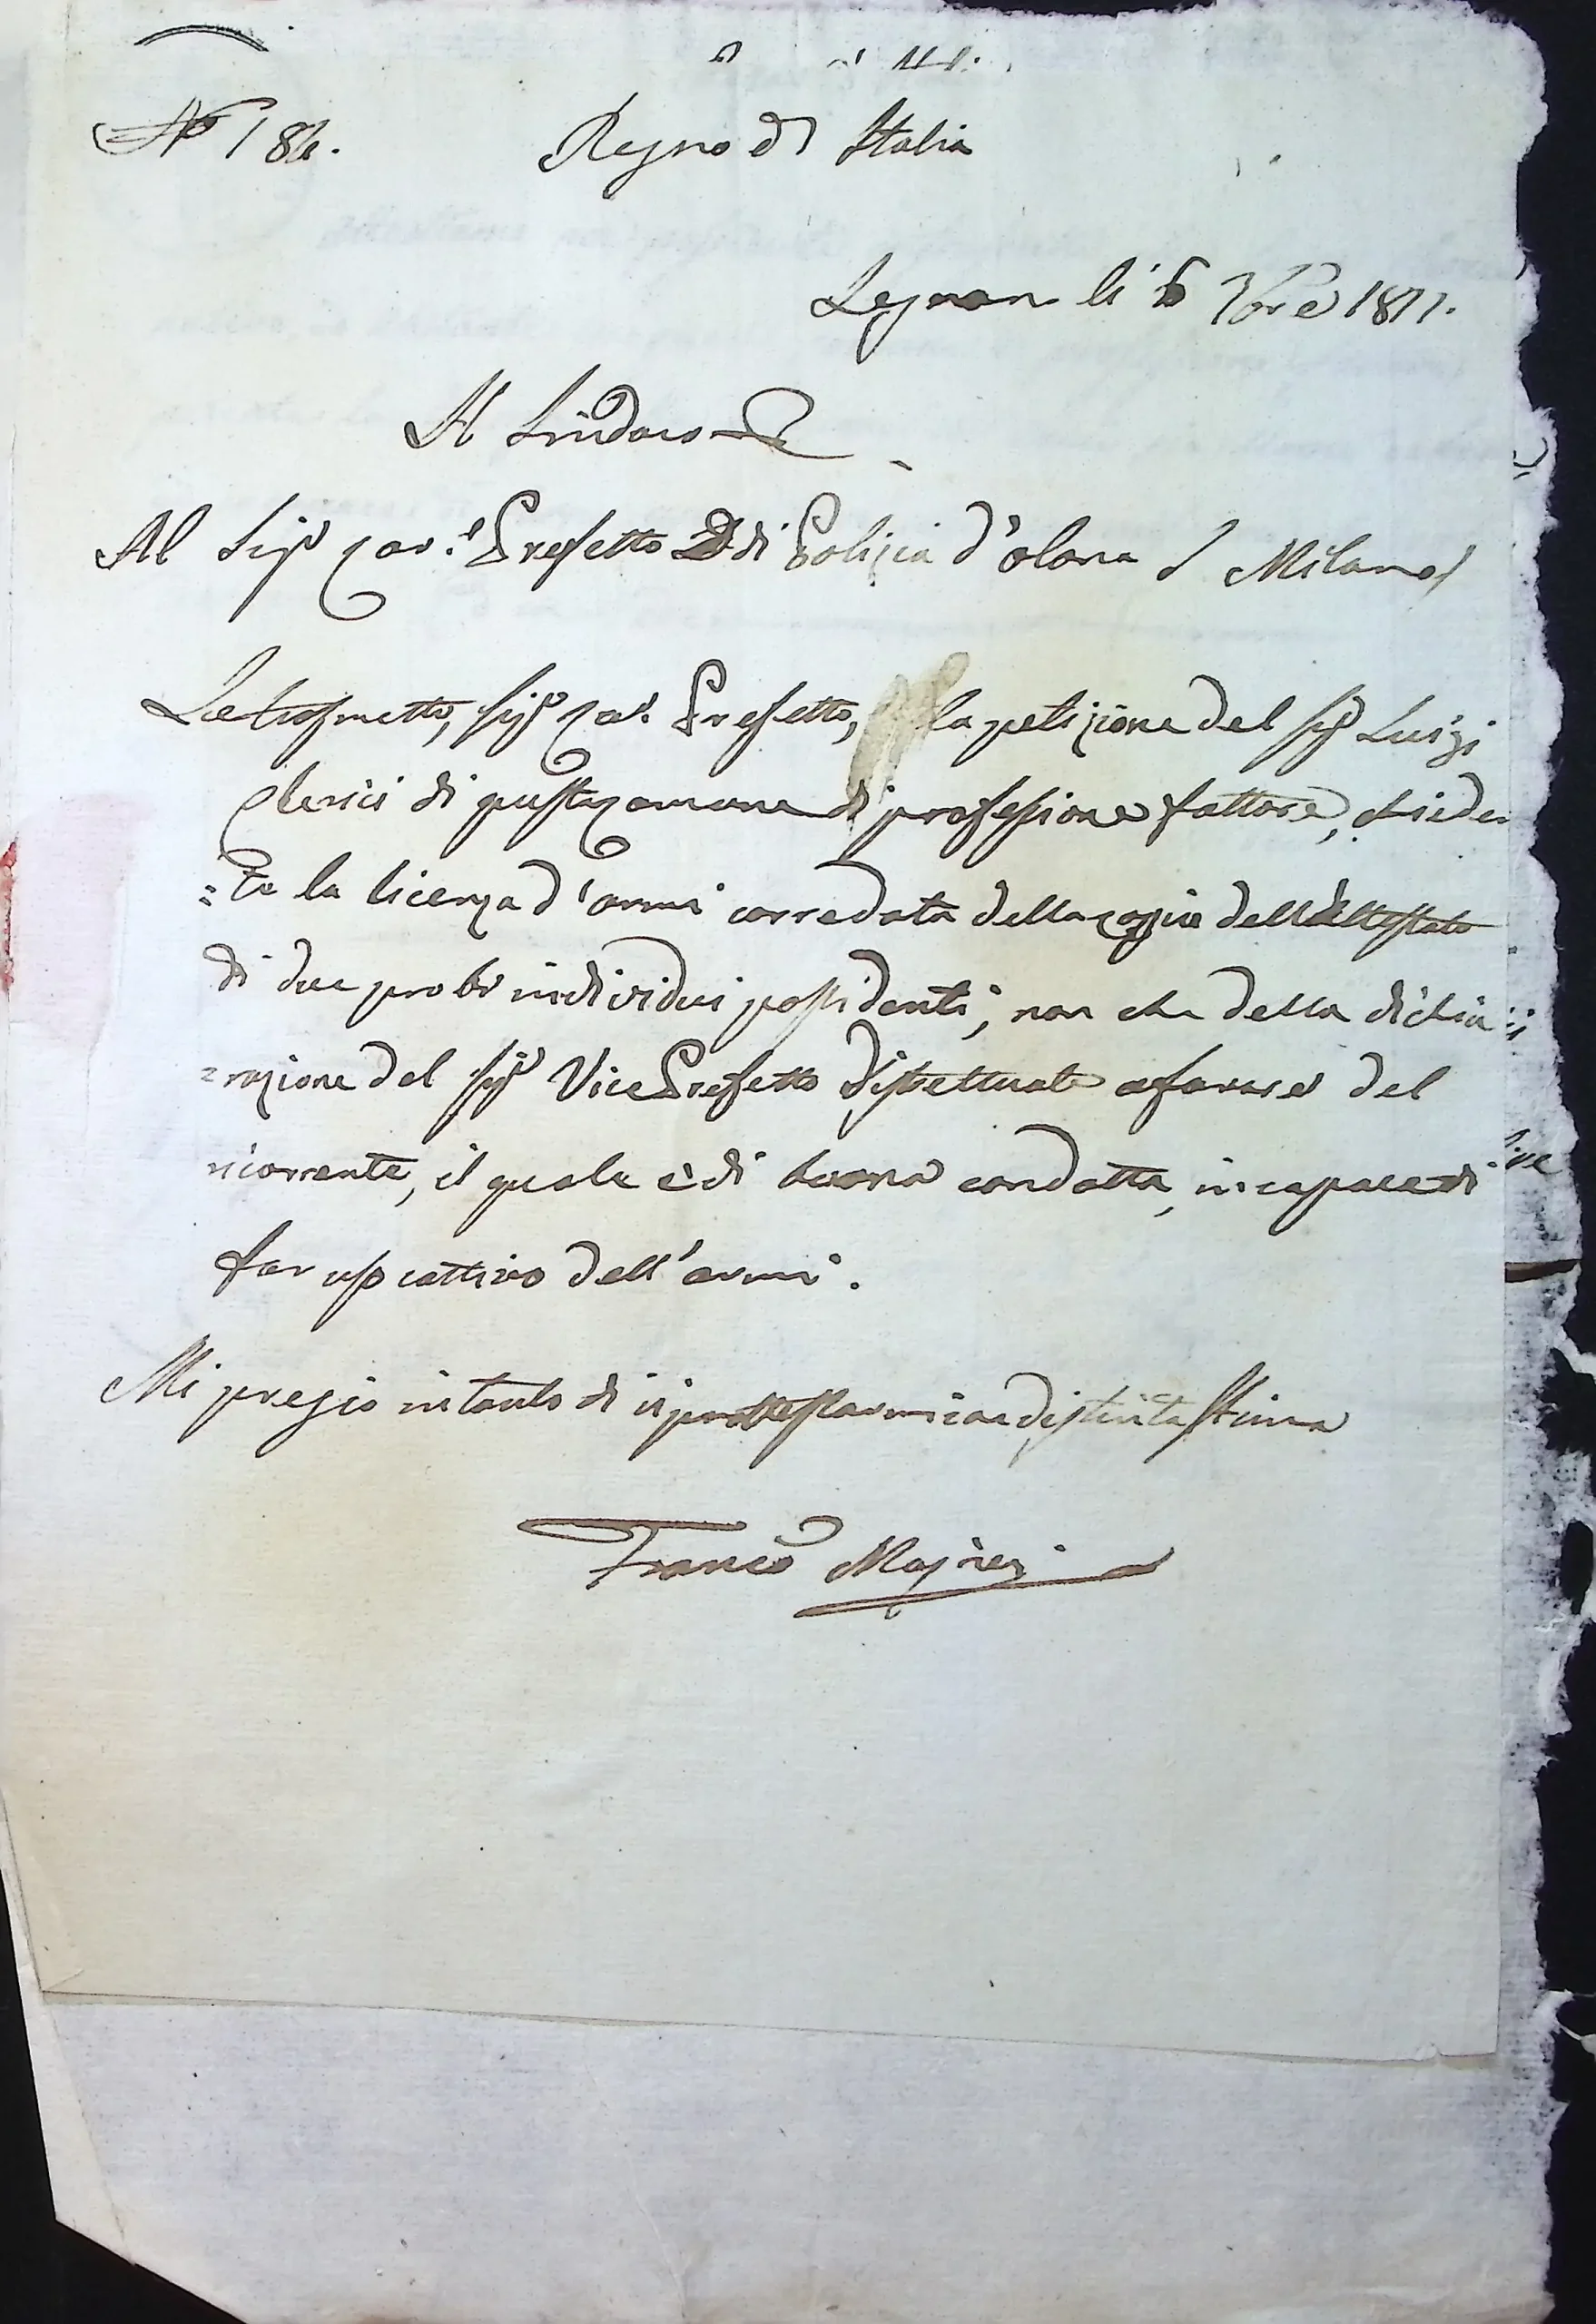 N° 184.
Regno di Italia
Legnano li 6 7bre 1811.
Il Sindaco
Al Sigr Cav.e Prefetto di Polizia d'olona / Milano /
Le trasmetto, sigr Cav. Prefetto, la petizione del sigr Luigi
Clerici di questo comune di professione fattore, chieden
=te la licenza d'armi corredata della copia dell'attestato
di due probi individui possidenti, non che della dichia
=razione del sigr Vice Prefetto distrettuale a favore del
ricorrente, il quale è di buona condotta, incapace di
far uso cattivo dell'armi.
Mi pregio intanto di protestarmi con distinta stima
Franco